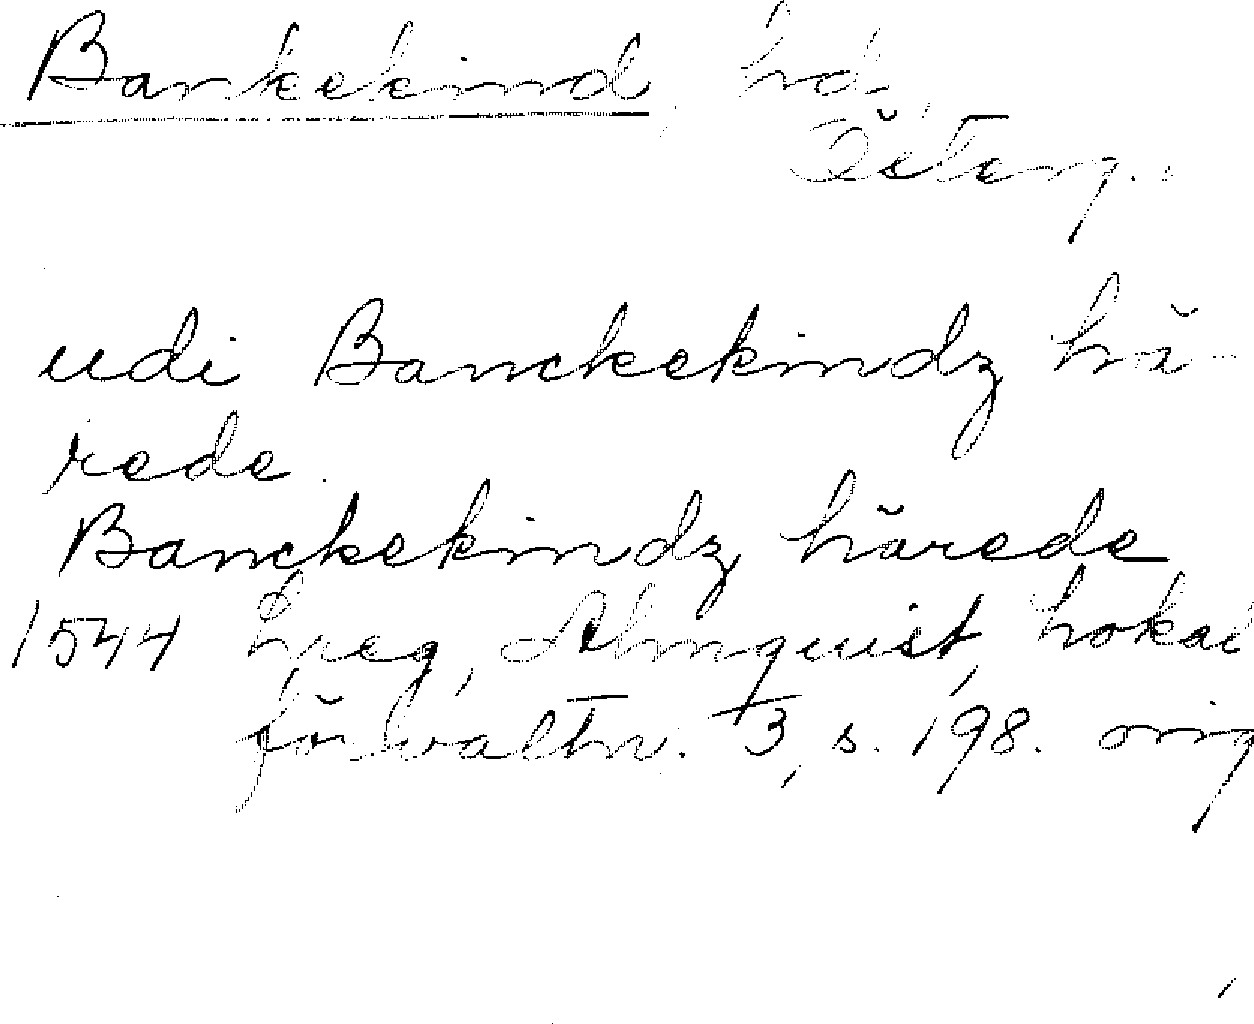 Bankekind hd,
Österg.
udi Banckekindz hä-
rede.
Banckekindz härede
1544 Lreg, Almquist, Lokal
förvaltn. T3, s. 198. orig